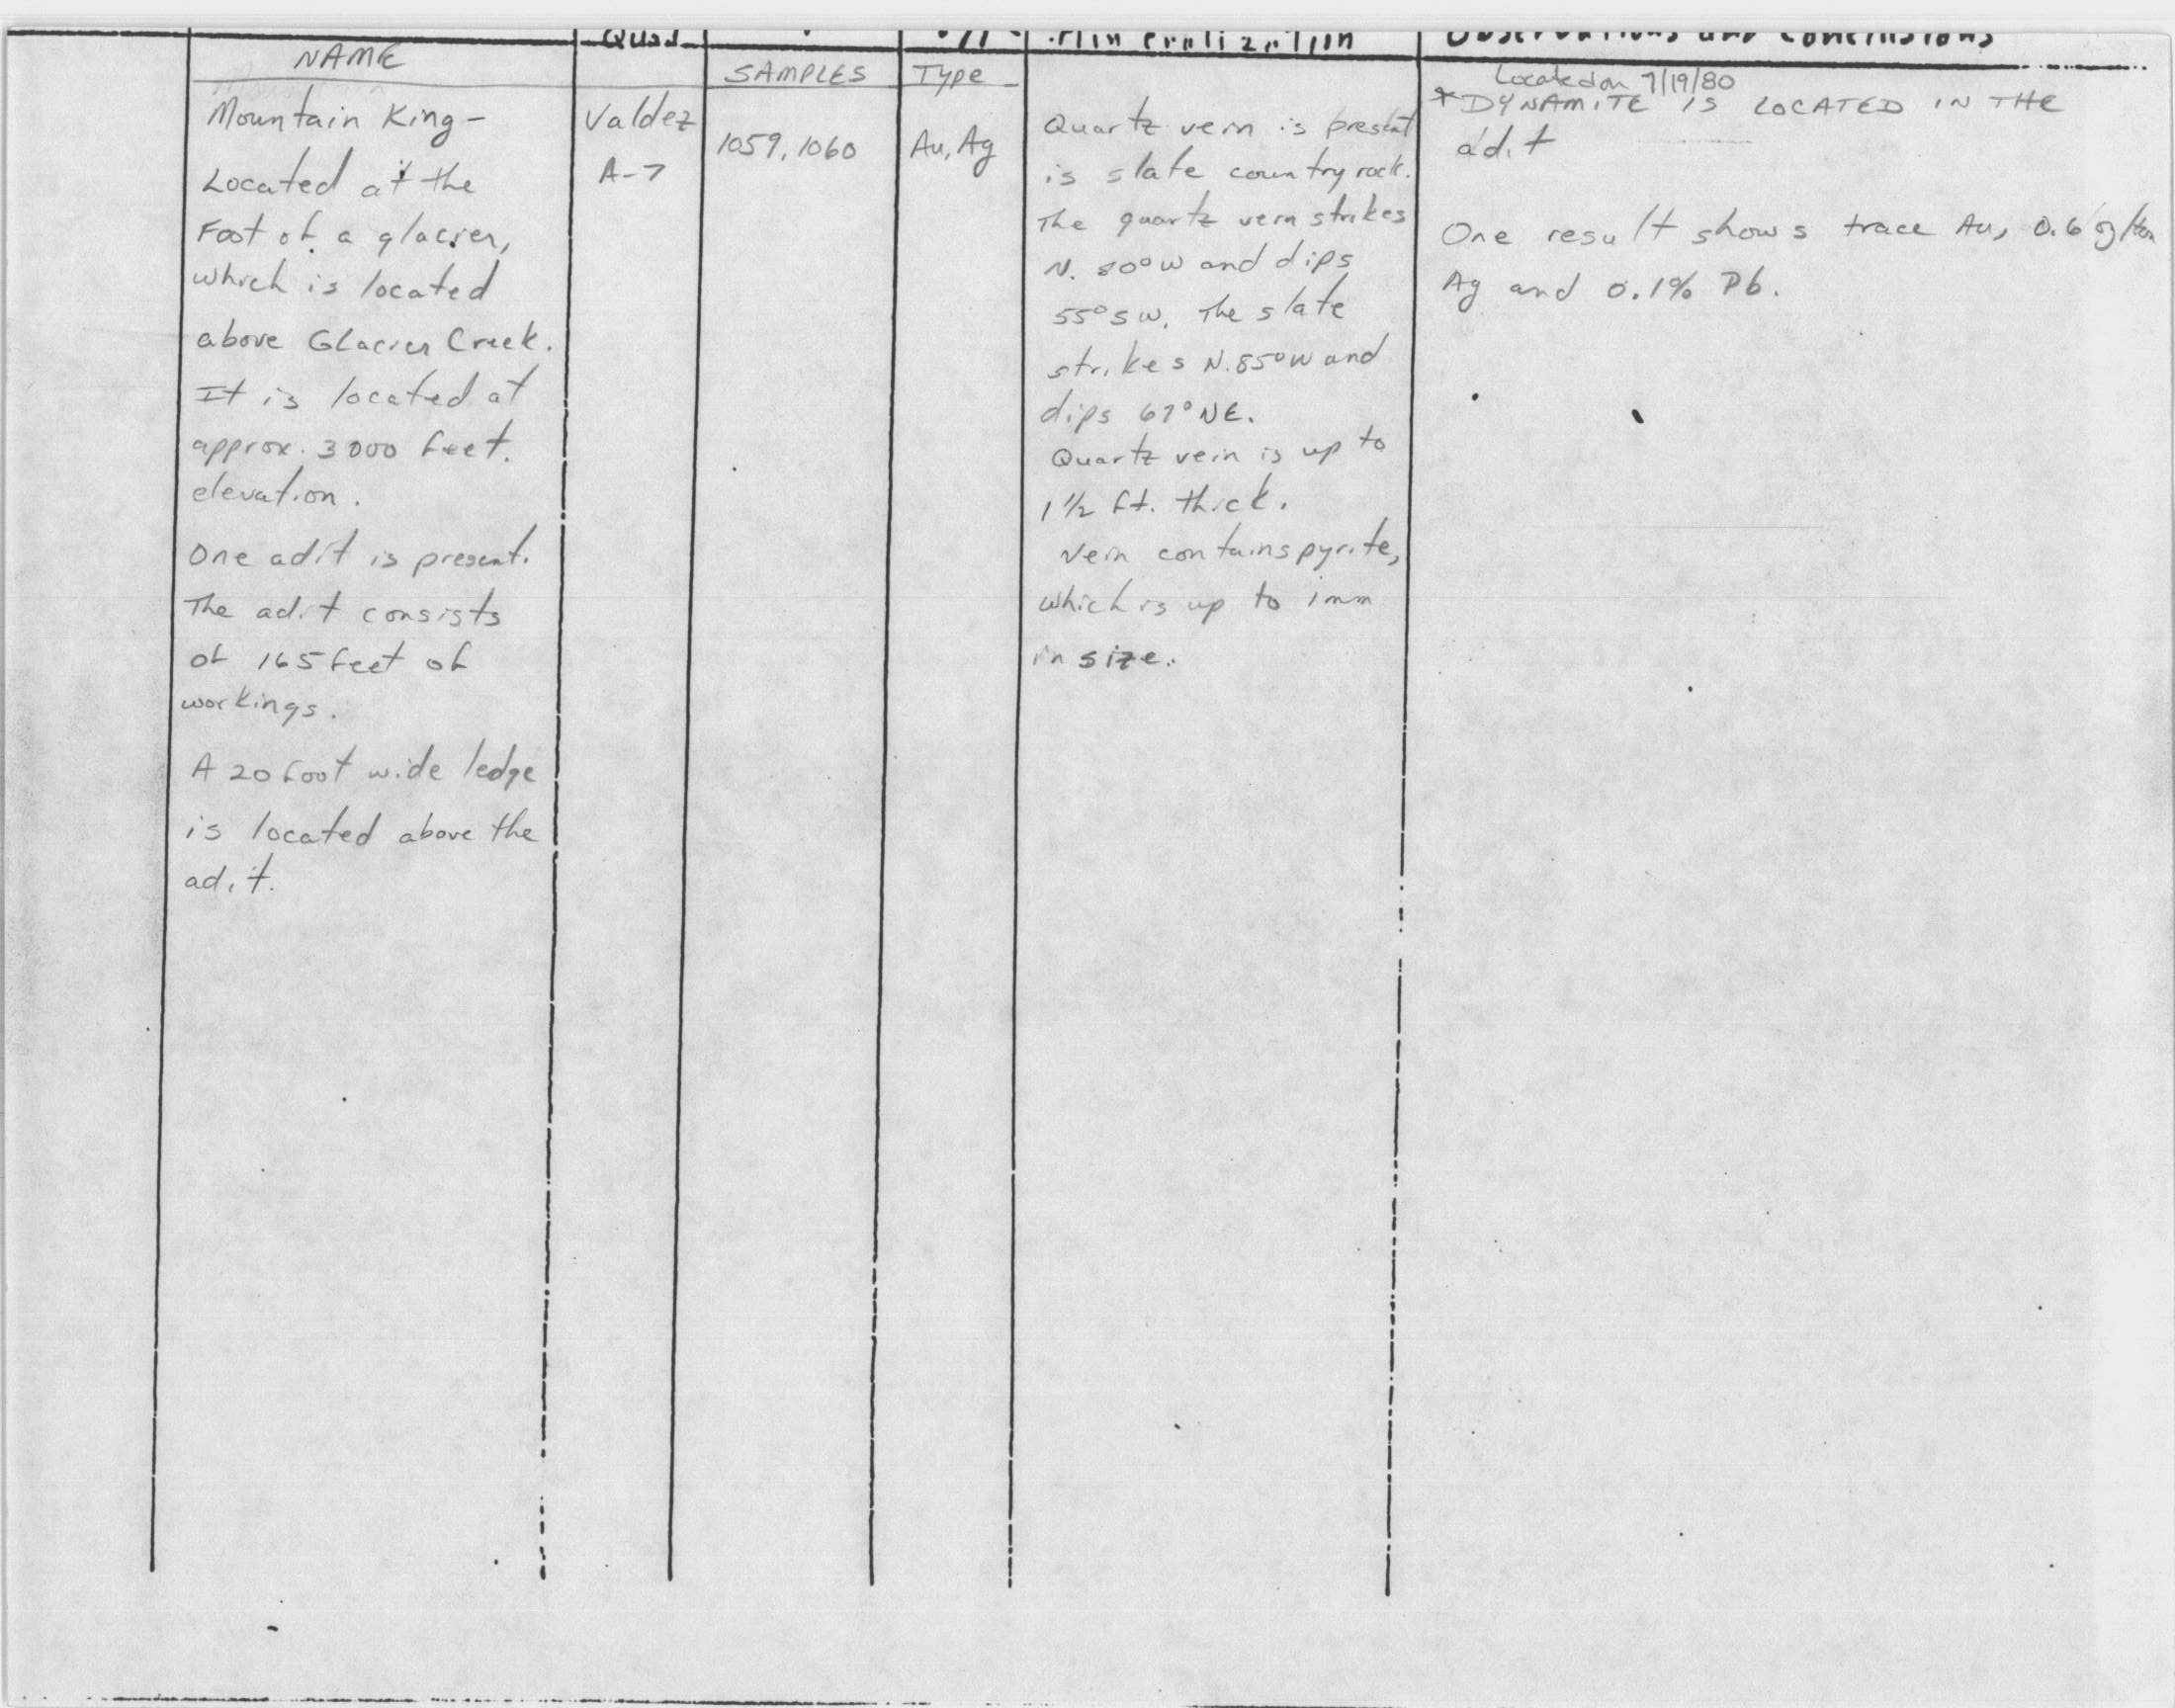 Quad
Mineralization
Observations and Conclusions
NAME
SAMPLES
Type
Mountain King -
Located at the
Foot of a glacier,
which is located
above Glacier Creek.
It is located at
approx. 3000 feet.
elevation.
One adit is present.
The adit consists
of 165 feet of
workings.
A 20 foot wide ledge
is located above the
adit.
Valdez
A-7
1059, 1060
Au, Ag
Quartz vein is present
is slate country rock.
The quartz vein strikes
N. 80° W and dips
55° SW. The slate
strikes N. 85° W and
dips 67° NE.
Quartz vein is up to
1 1/2 ft. thick.
Vein contains pyrite,
which is up to 1mm
in size.
Located on 7/19/80
* DYNAMITE IS LOCATED IN THE
adit
One result shows trace Au, 0.6 oz/ton
Ag and 0.1% Pb.